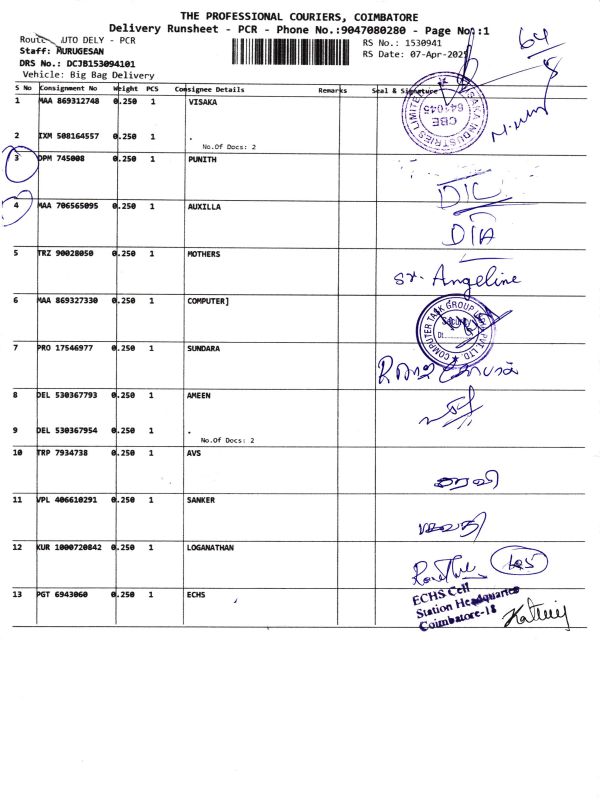 THE PROFESSIONAL COURIERS, COIMBATORE
Delivery Runsheet - PCR - Phone No.:9047080280 - Page No:1
Route AUTO DELY - PCR
RS No.: 1530941
Staff: MURUGESAN
RS Date: 07-Apr-2025
DRS No.: DCJB153094101
Vehicle: Big Bag Delivery
64
S No Consignment No Weight PCS Consignee Details Remarks Seal & Signature
1 MAA 869312748 0.250 1 VISAKA
VISAKA INDUSTRIES LIMITED
641045
CBE
2 IXM 508164557 0.250 1 .
No.Of Docs: 2
3 DPM 745008 0.250 1 PUNITH
DIC
4 MAA 706565095 0.250 1 AUXILLA
DIA
5 TRZ 90028050 0.250 1 MOTHERS
Sr. Angeline
6 MAA 869327330 0.250 1 COMPUTER]
COMPUTER TASK GROUP PVT. LTD.
7 PRO 17546977 0.250 1 SUNDARA
8 DEL 530367793 0.250 1 AMEEN
9 DEL 530367954 0.250 1 .
No.Of Docs: 2
10 TRP 7934738 0.250 1 AVS
11 VPL 406610291 0.250 1 SANKER
12 KUR 1000720842 0.250 1 LOGANATHAN
13 PGT 6943060 0.250 1 ECHS
ECHS Cell
Station Headquarter
Coimbatore-18